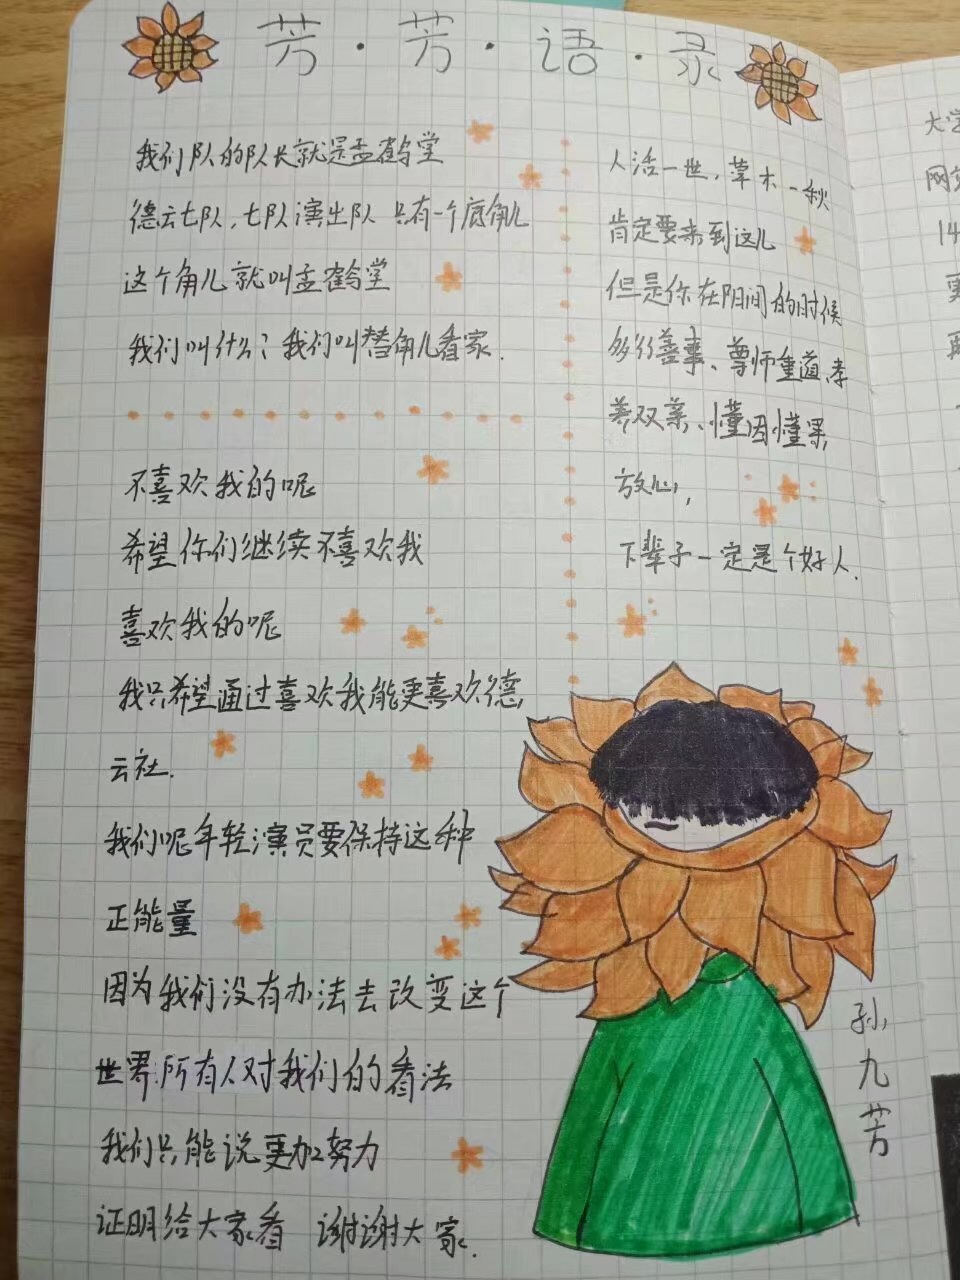 芳·芳·语·录
我们队的队长就是孟鹤堂
德云七队,七队演出队 只有一个底角儿
这个角儿就叫孟鹤堂
我们叫什么?我们叫替角儿看家.
不喜欢我的呢
希望你们继续不喜欢我
喜欢我的呢
我只希望通过喜欢我能更喜欢德
云社.
我们呢年轻演员要保持这种
正能量
因为我们没有办法去改变这个
世界所有人对我们的看法
我们只能说更加努力
证明给大家看 谢谢大家.
人活一世,草木一秋
肯定要来到这儿
但是你在阳间的时候
多行善事、尊师重道、孝
养双亲、懂因懂果,
放心,
下辈子一定是个好人.
孙九芳
大学
网
14
更